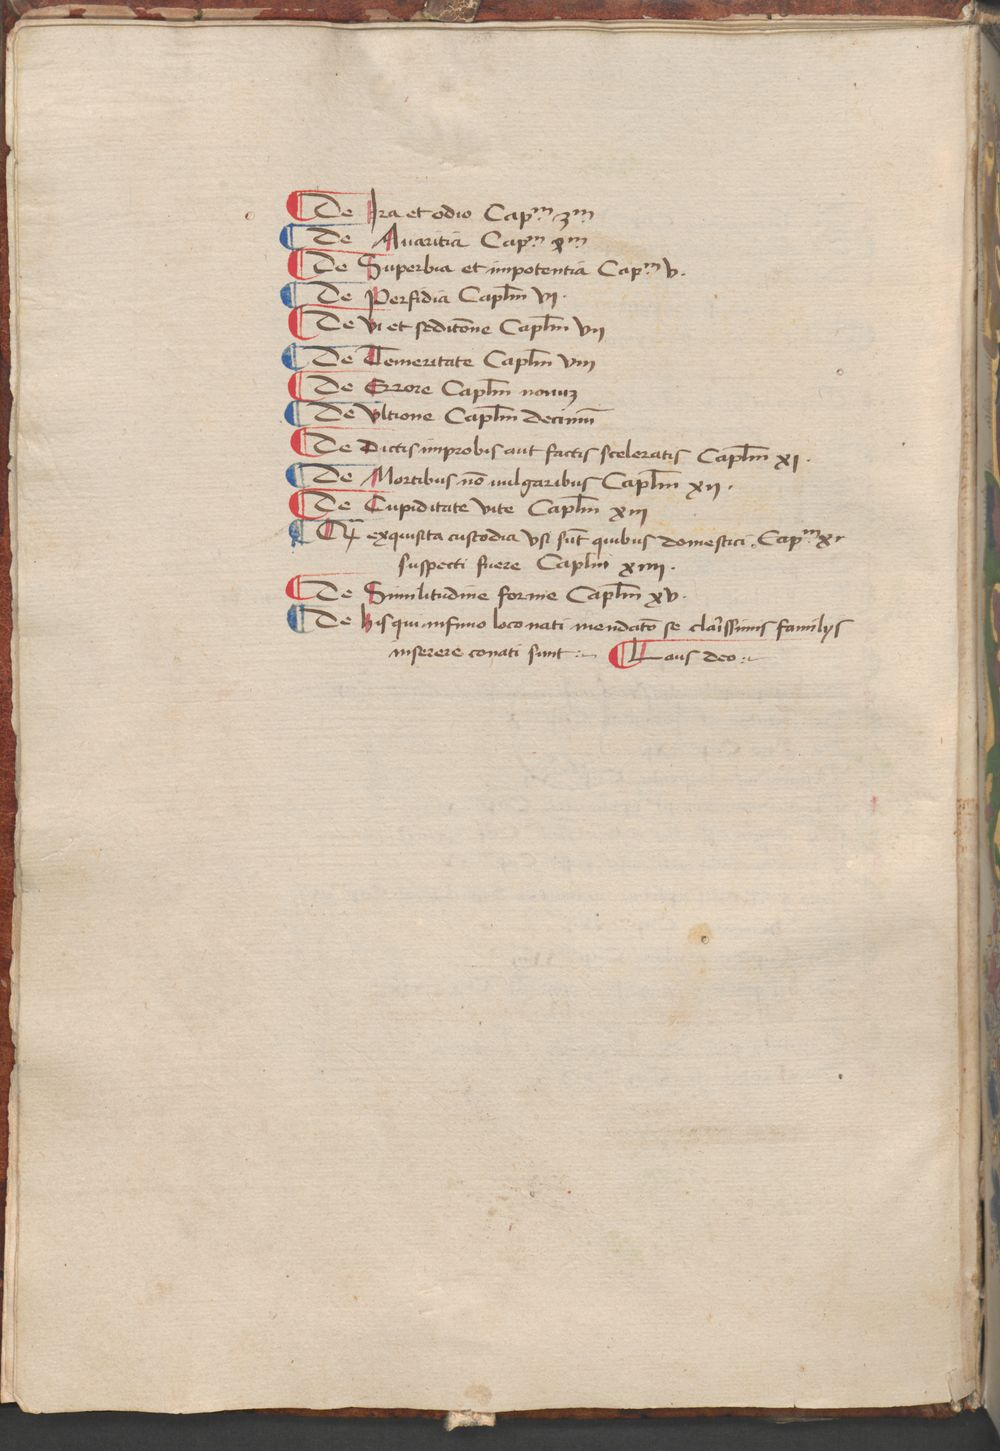 De Ira et odio Capm 3m
De Auaritia Capm 4m
De Superbia et impotentia Capm V.
De Perfidia Caplm VI.
De Vi et seditōne Caplm VII
De Temeritate Caplm VIII
De Errore Caplm nonuʒ
De Vltione Caplm decimū
De Dictis improbis aut factis sceleratis Caplm XI.
De Mortibus nō uulgaribus Caplm XII.
De Cupiditate vite Caplm XIII
Qꝫ exquisita custodia vsi sūt quibus domestici. Capm
suspecti fuere Caplm XIIII.
De Similitudine forme Caplm XV.
De his qui infimo loco nati mendatō se clarissimis familijs
inserere conati sunt :~ Laus deo :~